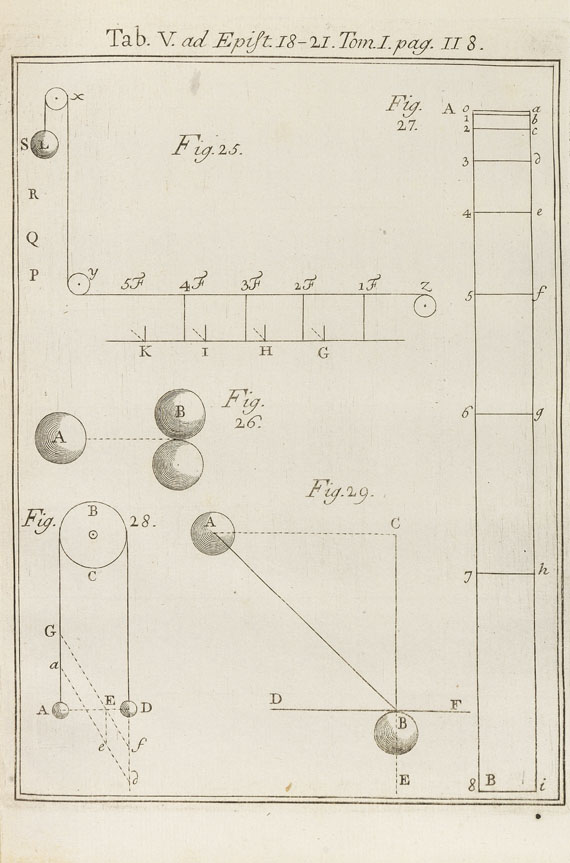 Tab. V. ad Epiſt. 18-21. Tom. I. pag. 118.
x
S L
Fig. 25.
R
Q
P
y
5F 4F 3F 2F 1F Z
K I H G
Fig.
27.
A 0 a
1 b
2 c
3 d
4 e
5 f
6 g
7 h
8 B i
A
B
Fig.
26.
Fig. 28.
B
C
G
a
A E D
e f
d
Fig. 29.
A C
D F
B
E